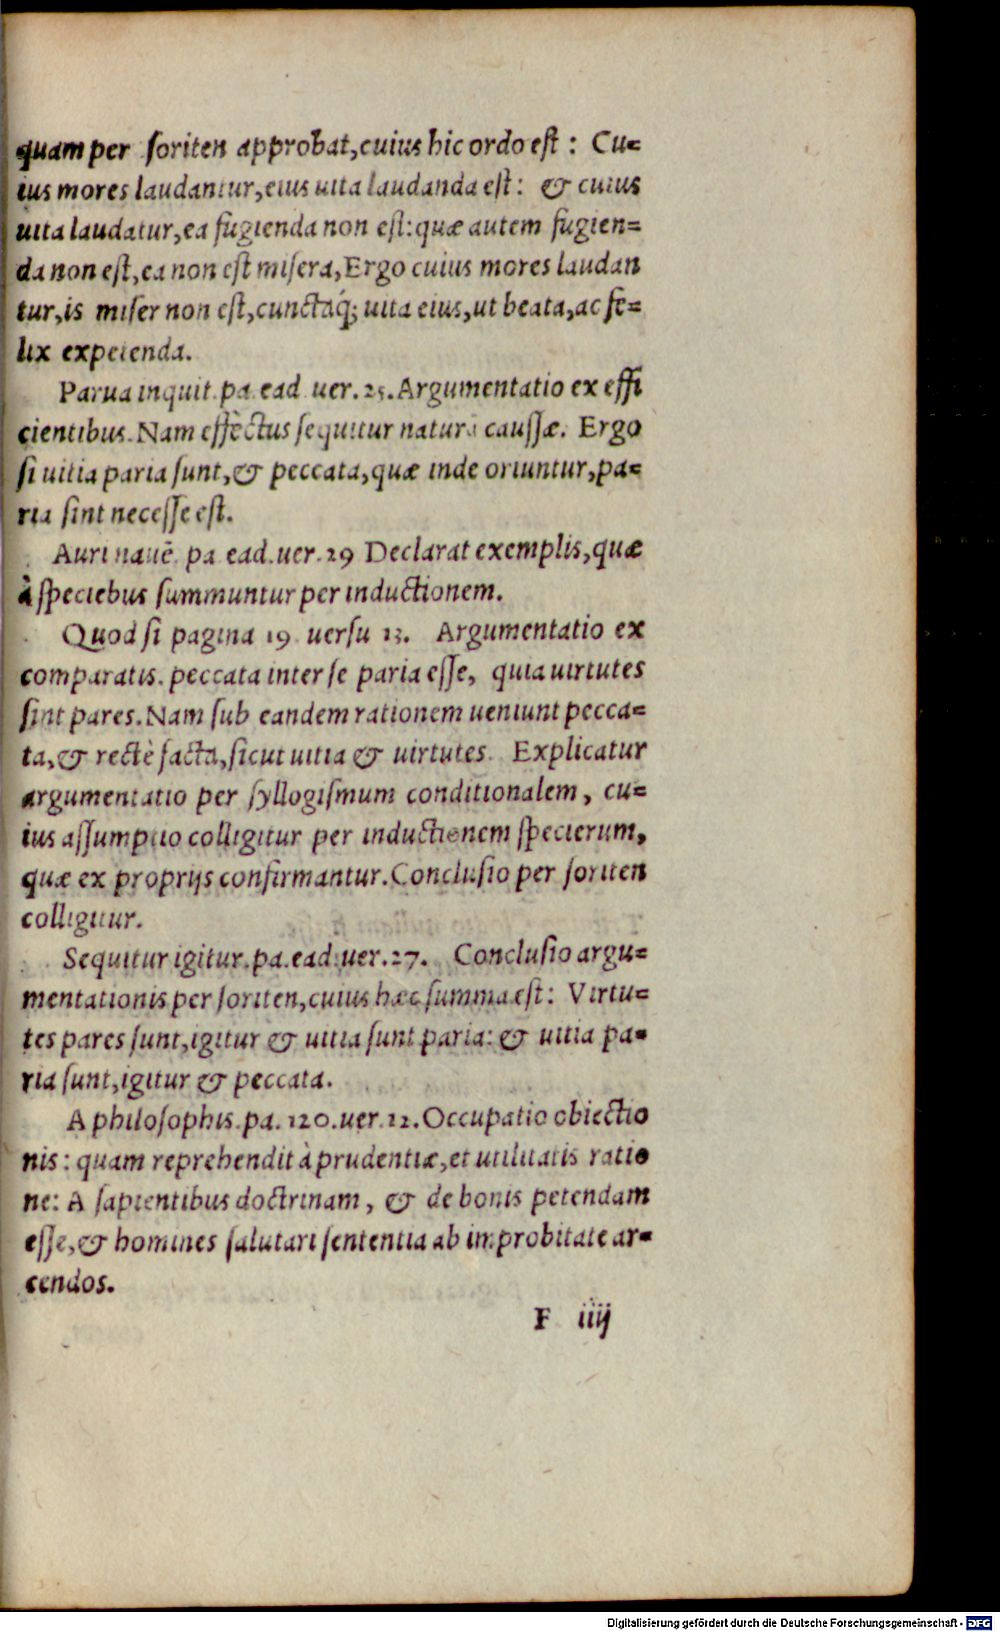 quam per ſoriten approbat,cuius hic ordo eſt : Cu=
ius mores laudantur,eius uita laudanda eſt: & cuius
uita laudatur,ea fugienda non eſt:quæ autem fugien=
da non eſt,ea non eſt miſera,Ergo cuius mores laudan
tur,is miſer non eſt,cunctaq́; uita eius,ut beata,ac fe=
lix expetenda.
Parua inquit.pa.ead.uer.25.Argumentatio ex effi
cientibus.Nam effectus ſequitur naturā cauſſæ. Ergo
ſi uitia paria ſunt,& peccata,quæ inde oriuntur,pa=
ria ſint neceſſe eſt.
Auri nauē. pa ead.uer.29 Declarat exemplis,quæ
à ſpeciebus ſummuntur per inductionem.
Quod ſi pagina 19 uerſu 13. Argumentatio ex
comparatis. peccata inter ſe paria eſſe, quia uirtutes
ſint pares.Nam ſub eandem rationem ueniunt pecca=
ta,& rectè facta,ſicut uitia & uirtutes. Explicatur
argumentatio per ſyllogiſmum conditionalem, cu=
ius aſſumptio colligitur per inductionem ſpecierum,
quæ ex proprijs confirmantur.Concluſio per ſoriten
colligitur.
Sequitur igitur.pa.ead.uer.27. Concluſio argu=
mentationis per ſoriten,cuius hæc ſumma eſt: Virtu=
tes pares ſunt,igitur & uitia ſunt paria: & uitia pa=
ria ſunt,igitur & peccata.
A philoſophis.pa.120.uer.12.Occupatio obiectio
nis: quam reprehendit à prudentiæ,et utilitatis ratio
ne: A ſapientibus doctrinam, & de bonis petendam
eſſe,& homines ſalutari ſententia ab improbitate ar=
cendos.
F iiij
Digitalisierung gefördert durch die Deutsche Forschungsgemeinschaft - DFG